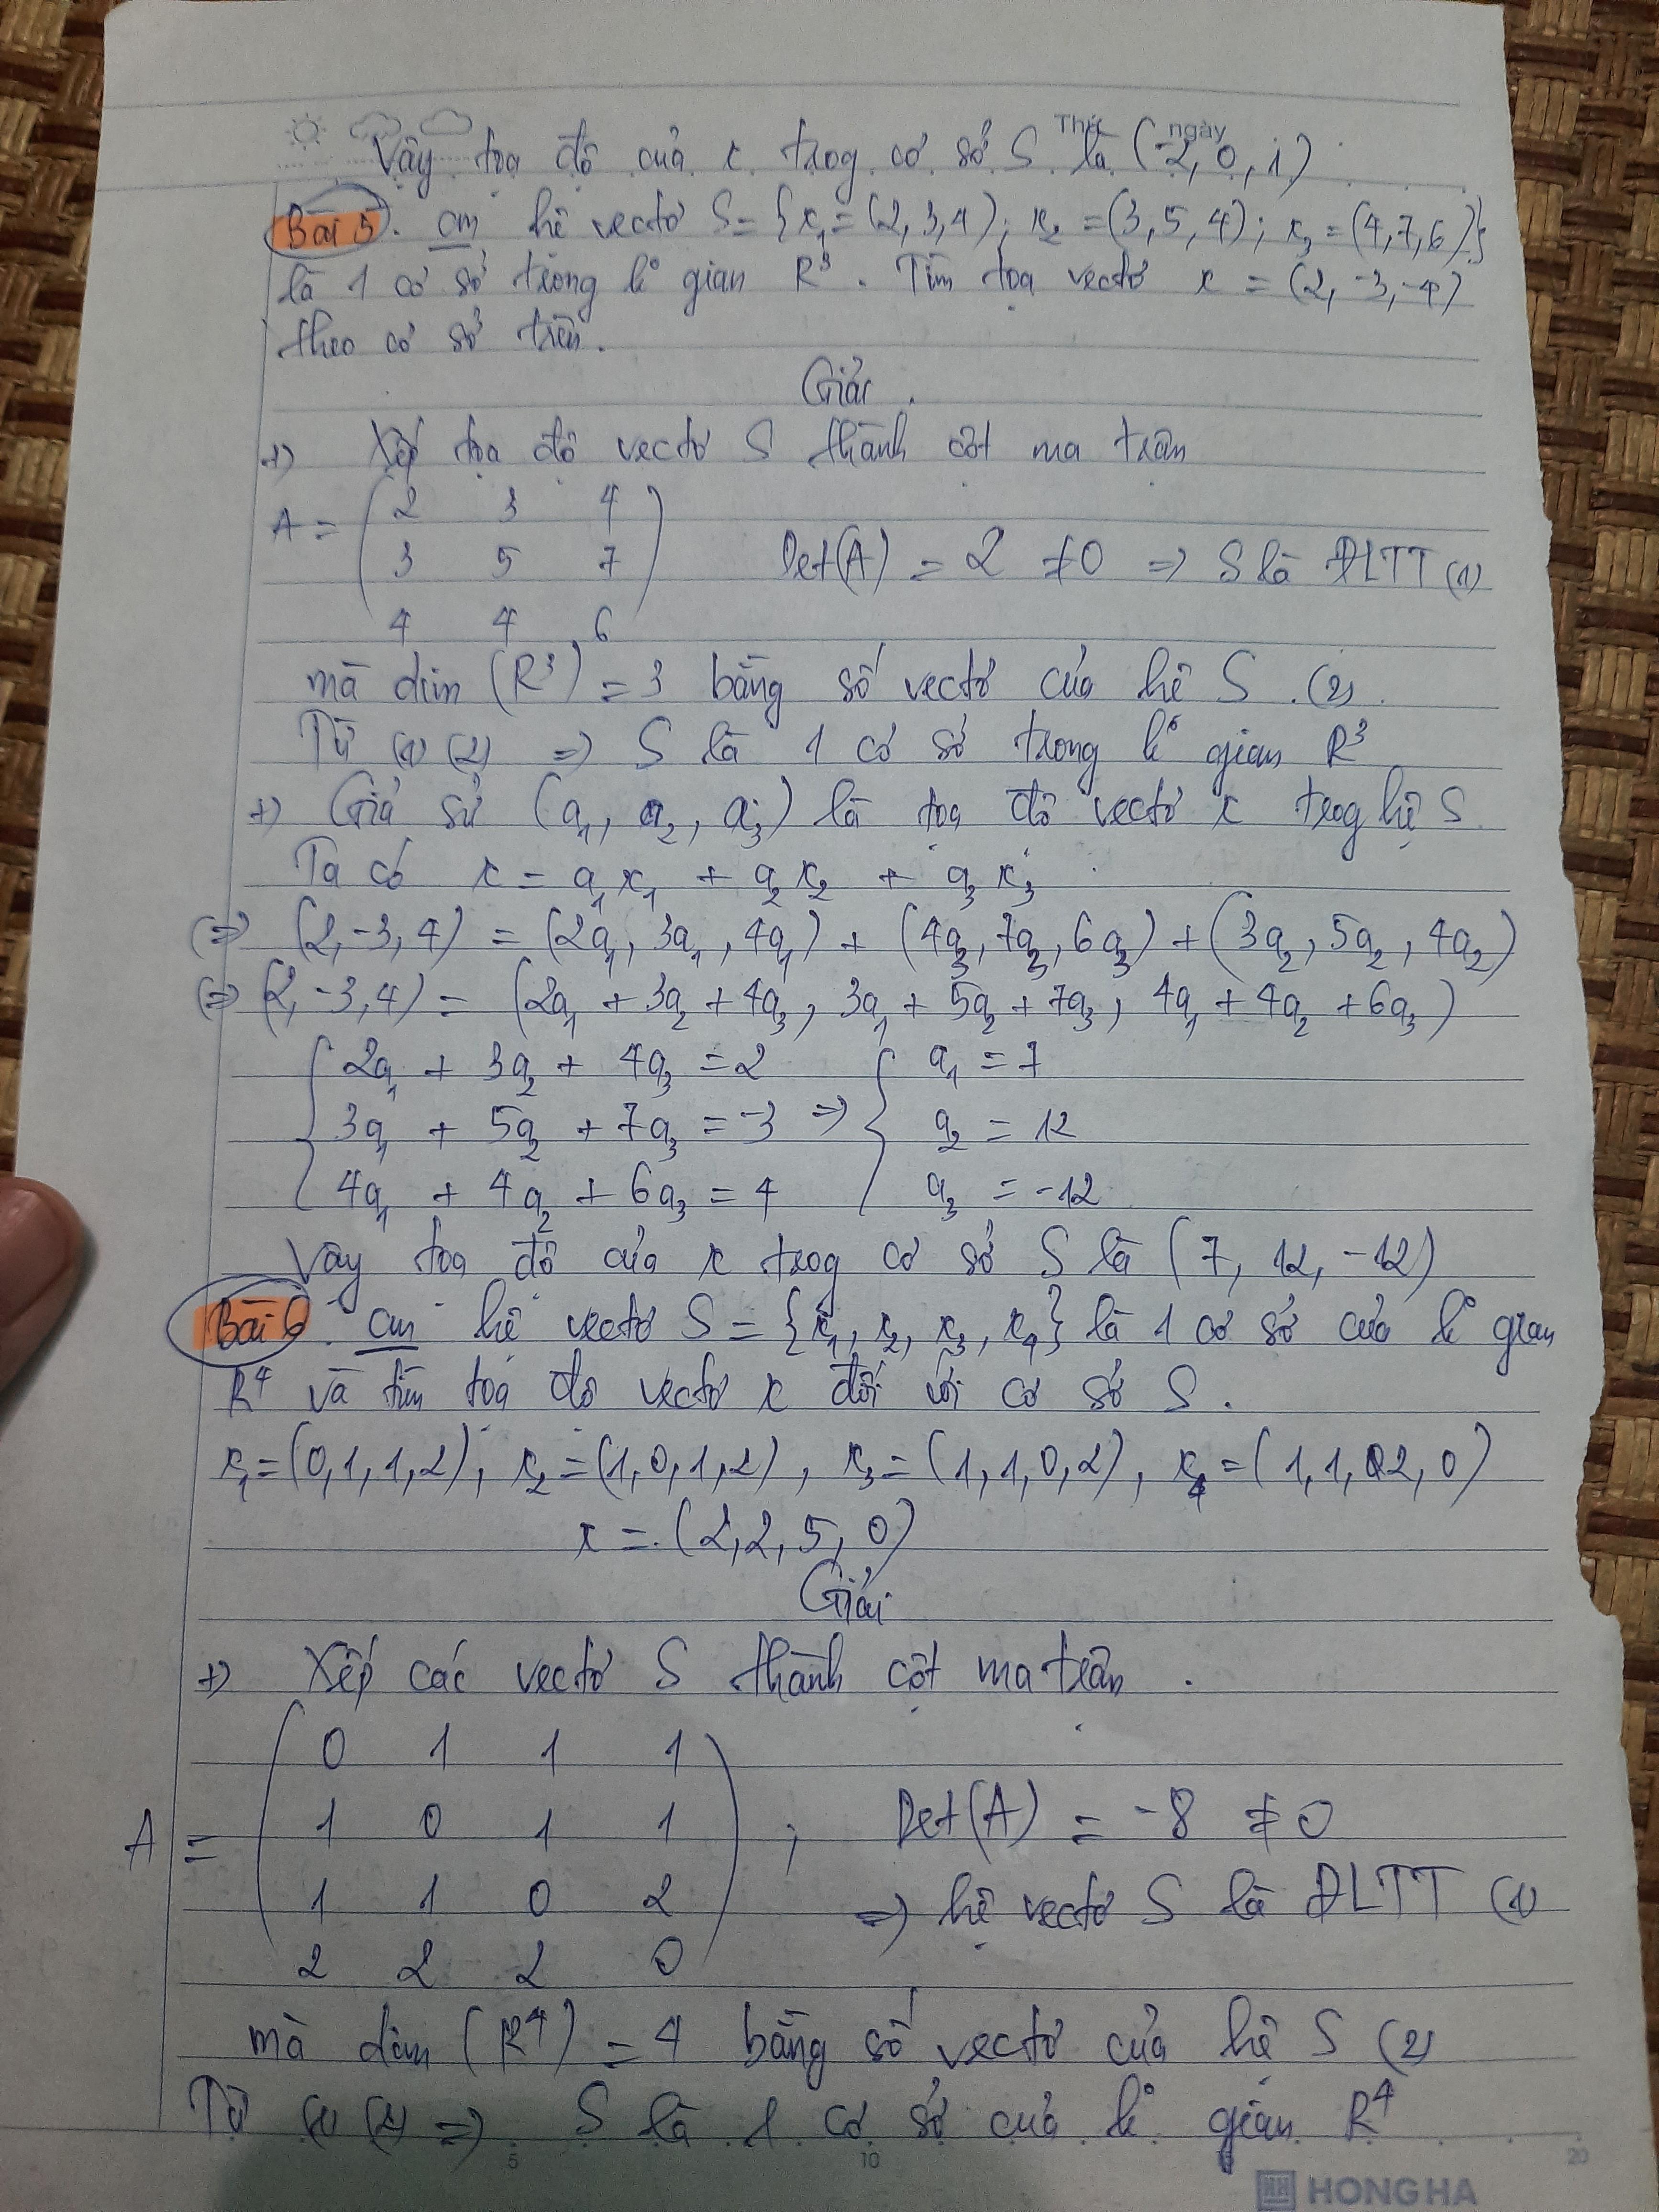 Thứ ngày
Vậy tọa độ của x trog cơ sở S là (-2, 0, 1)
Bài 5. cm hệ vectơ S = {x₁ = (2, 3, 4); x₂ = (3, 5, 4); x₃ = (4, 7, 6)}
là 1 cơ sở trong k° gian R³. Tìm tọa vectơ x = (2, -3, -4)
theo cơ sở trên.
Giải.
+) Xếp tọa độ vectơ S thành cột ma trận
A = ( 2 3 4
3 5 7
4 4 6 ) Det(A) = 2 ≠ 0 => S là ĐLTT (1)
mà dim (R³) = 3 bằng số vectơ của hệ S. (2).
Từ (1) (2) => S là 1 cơ sở trong k° gian R³
+) Giả sử (a₁, a₂, a₃) là tọa độ vectơ x trog hệ S
Ta có x = a₁x₁ + a₂x₂ + a₃x₃
(=> (2, -3, 4) = (2a₁, 3a₁, 4a₁) + (4a₃, 7a₃, 6a₃) + (3a₂, 5a₂, 4a₂)
(=> (2, -3, 4) = (2a₁ + 3a₂ + 4a₃, 3a₁ + 5a₂ + 7a₃, 4a₁ + 4a₂ + 6a₃)
{ 2a₁ + 3a₂ + 4a₃ = 2 { a₁ = 7
3a₁ + 5a₂ + 7a₃ = -3 => a₂ = 12
4a₁ + 4a₂ + 6a₃ = 4 a₃ = -12
Vậy tọa độ của x trog cơ sở S là (7, 12, -12)
Bài 6. cm hệ vectơ S = {x₁, x₂, x₃, x₄} là 1 cơ sở của k° gian
R⁴ và tìm tọa độ vectơ x đối với cơ sở S.
x₁ = (0, 1, 1, 2), x₂ = (1, 0, 1, 2), x₃ = (1, 1, 0, 2), x₄ = (1, 1, 2, 0)
x = (2, 2, 5, 0)
Giải
+) Xếp các vectơ S thành cột ma trận.
A = ( 0 1 1 1
1 0 1 1
1 1 0 2
2 2 2 0 ) ; Det(A) = -8 ≠ 0
=> hệ vectơ S là ĐLTT (1)
mà dim (R⁴) = 4 bằng số vectơ của hệ S (2)
Từ (1) (2) => S là 1 cơ sở của k° gian R⁴
5 10 20
HONG HA